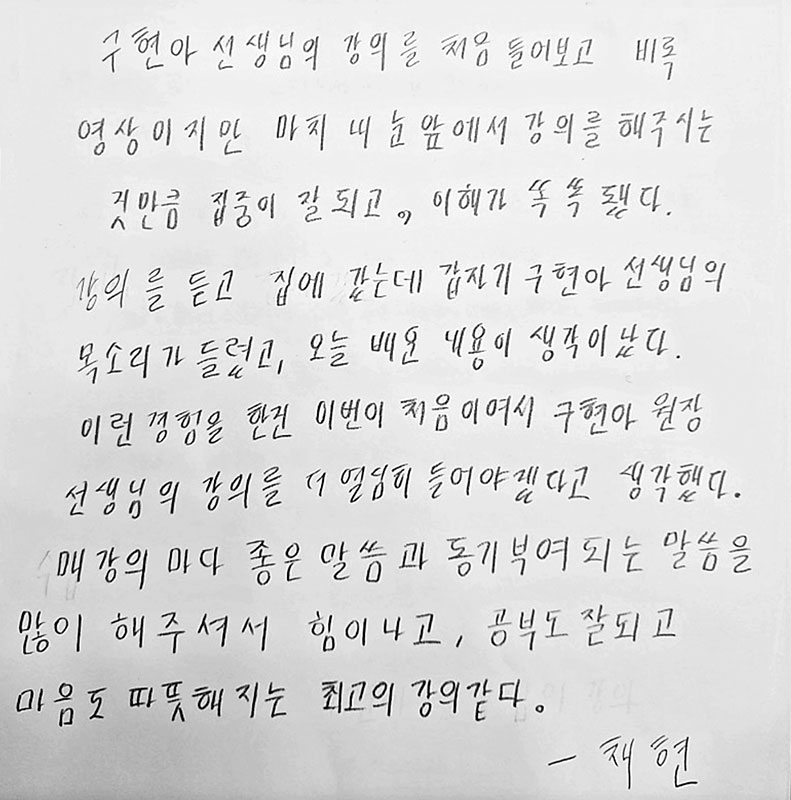 구현아 선생님의 강의를 처음 들어보고 비록
영상이지만 마치 내 눈 앞에서 강의를 해주시는
것만큼 집중이 잘 되고, 이해가 쏙 쏙 됐다.
강의를 듣고 집에 갔는데 갑자기 구현아 선생님의
목소리가 들렸고, 오늘 배운 내용이 생각이 났다.
이런 경험을 한건 이번이 처음이여서 구현아 원장
선생님의 강의를 더 열심히 들어야겠다고 생각했다.
매 강의 마다 좋은 말씀과 동기부여 되는 말씀을
많이 해주셔서 힘이나고, 공부도 잘되고
마음도 따뜻해지는 최고의 강의같다.
- 채현